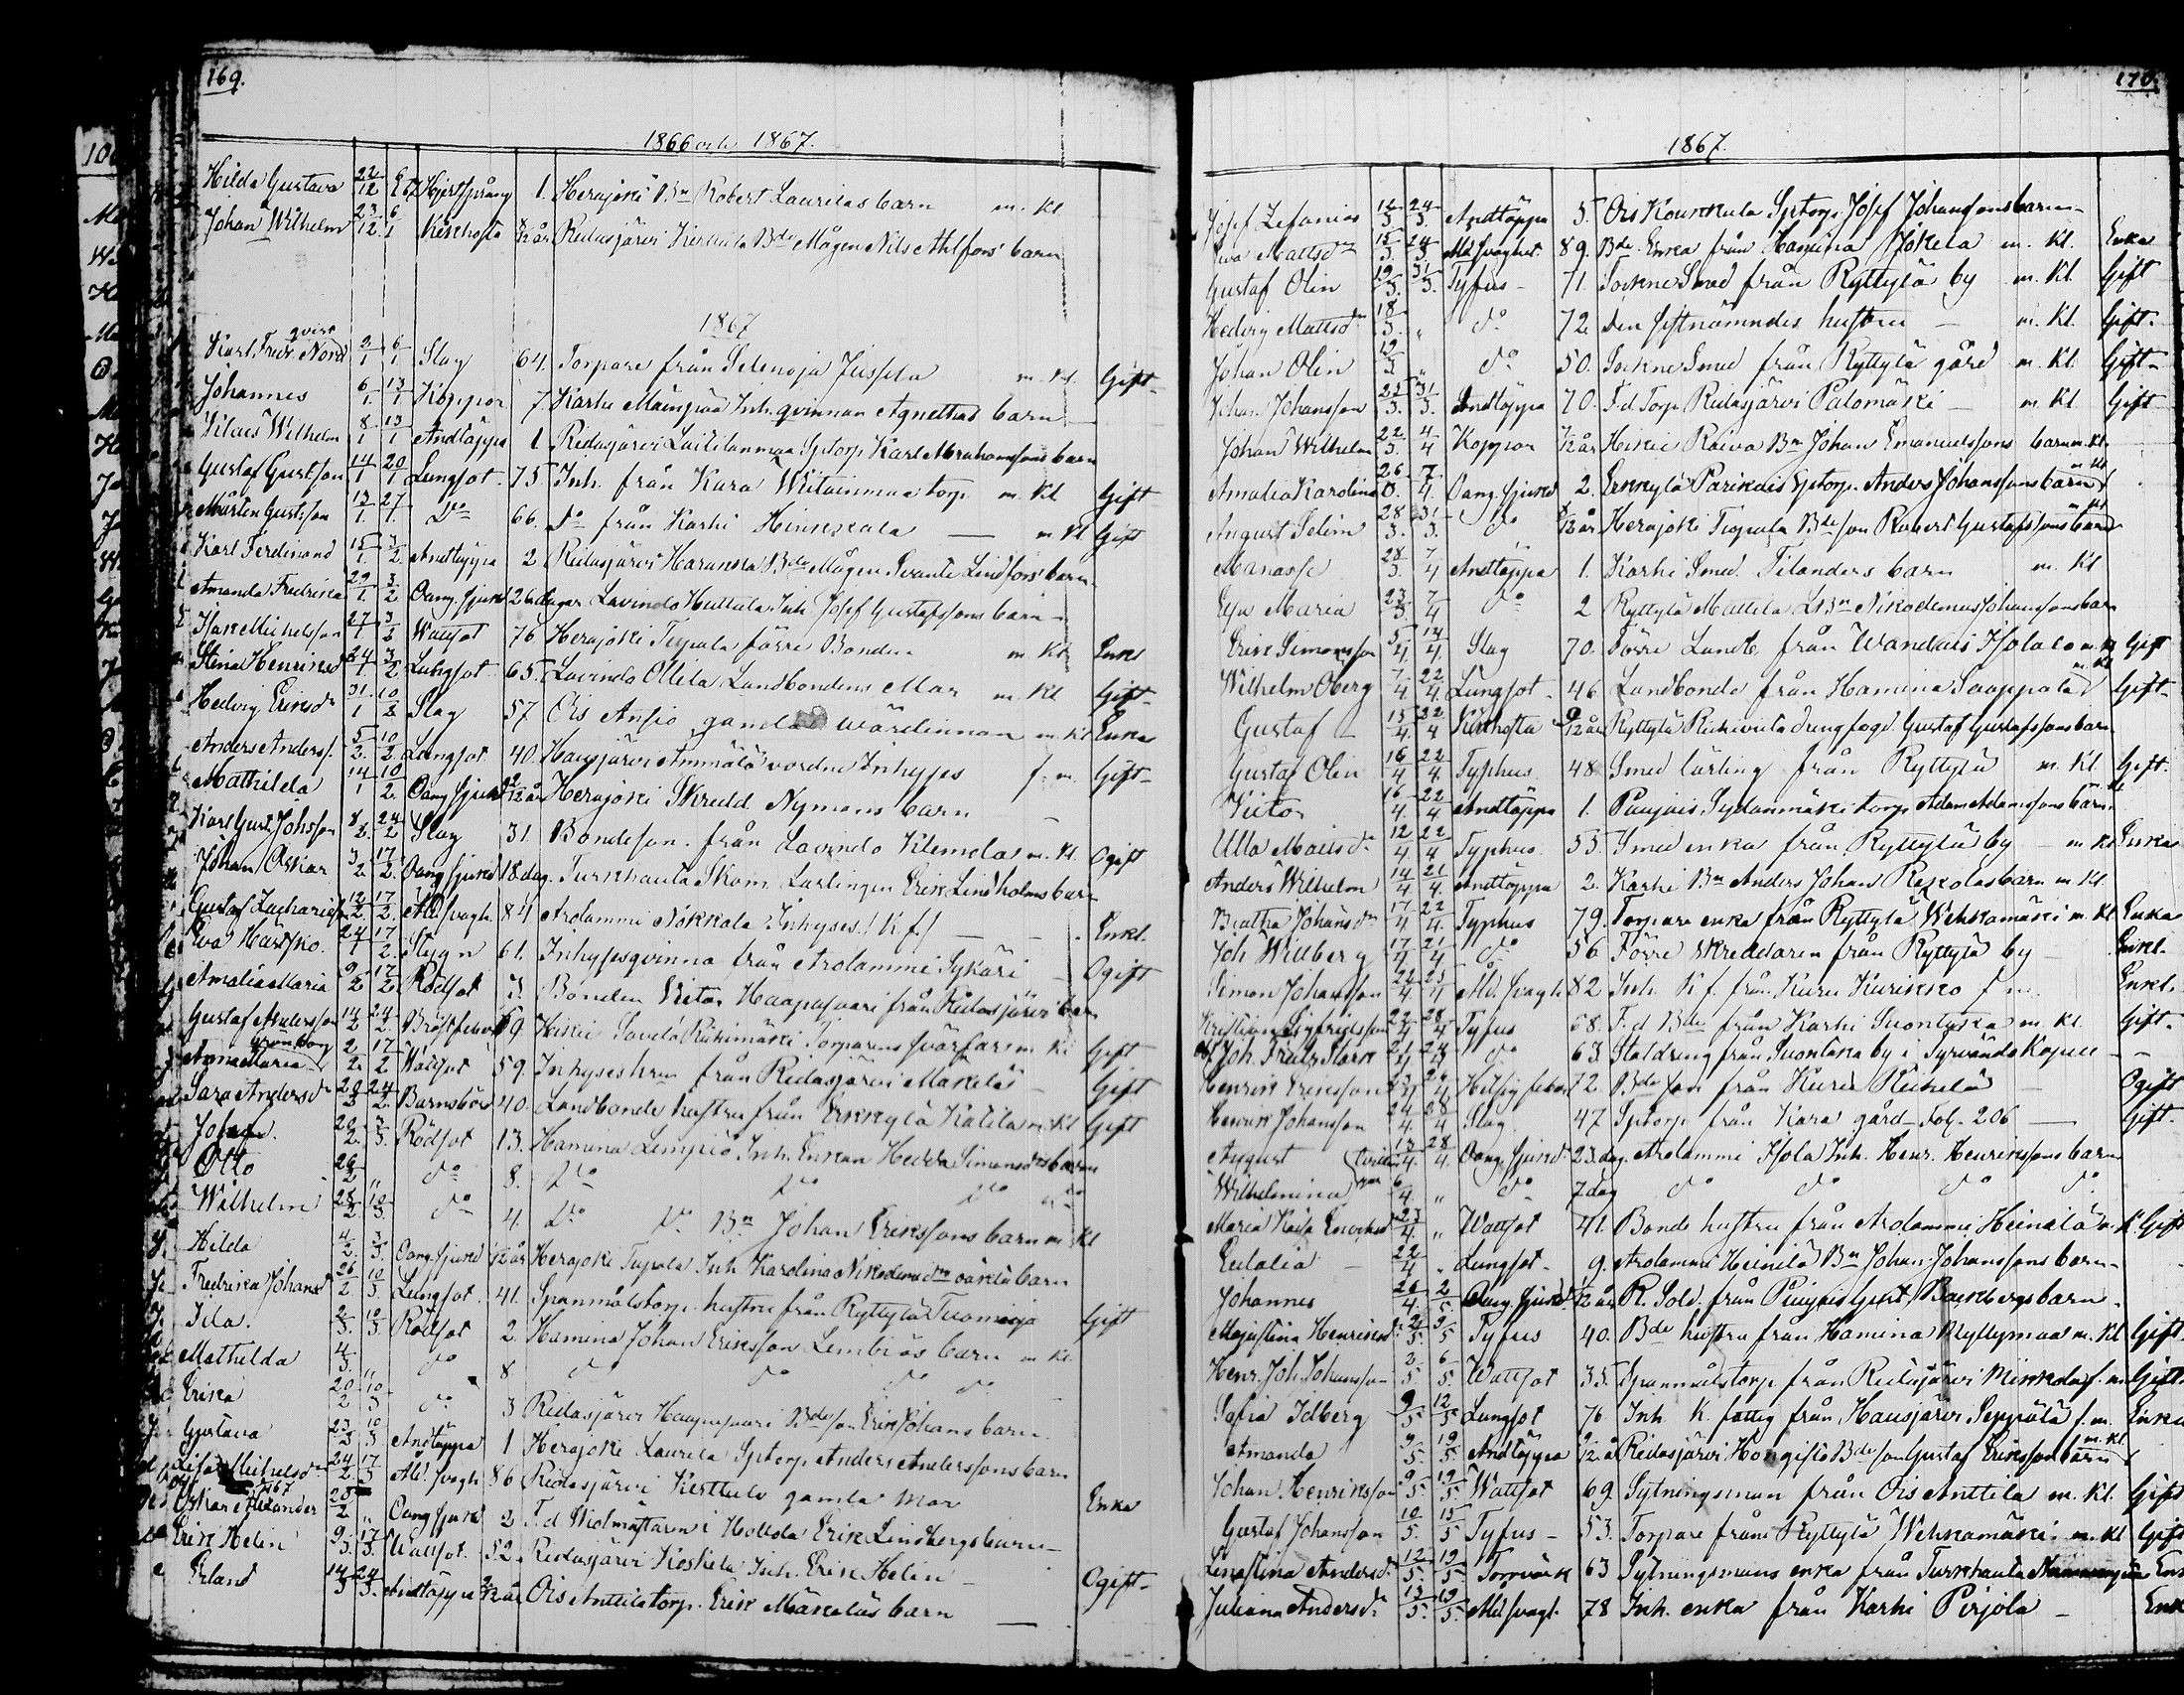 169.
1866 och 1867.
Hilda Gustava 22/12 6/1 67 Hjertsprång 1. Herajoki Bn Robert Laurilas barn m. Kl
Johan Wilhelm 23/12 6/1 Kikhosta Ridasjärvi Kerttula Bde Mågen Nils Ahlfors barn
1867
Karl Fredr. Nordqvist 2/1 6/1 Slag 64. Torpare från Selenoja Jussila m. Kl. Gift
Johannes 6/1 13/1 Koppor 7. Karhi Mäenpää Inh. qvinnan Agnethas barn
Wilhelm 8/1 13/1 Andtäppa 1 Ridasjärvi Sptorp. Karl Abrahamssons barn
Gustaf Gustsson 14/1 20/1 Lungsot 75 Inh. från Kara torp m. Kl Gift
Mårten Gustsson 13/1 27/1 Do 66. Do från Karhi m. Kl Gift
Karl Ferdinand 15/1 3/2 Andtäppa 2 Ridasjärvi Haranka Bde Mågen Svante Lindfors barn
Amanda Fredrika 29/1 3/2 Oang. sjukd 26 dagar Lavindo Huttula Inh. Josef Gustafssons barn
Isak Michelsson 27/1 3/2 Wattsot 76 Herajoki Tuppala förre Bonden m Kl Enkl
Stina Henriksd 24/1 3/2 Lungsot 65. Lavindo Ollila Landbondens Mor m. Kl Gift
Hedvig Eriksdr 31/1 10/2 Slag 57 Ois Ansio gamla wärdinnan m Kl Enka
Anders Anderss. 5/2 10/2 Lungsot 40. Hausjärvi Ammälä vordne Inhyses f. m. Gift
Mathilda 14/1 10/2 Oang sjukd Herajoki Skredd Nymans barn
Karl Gust. Johsson 8/2 24/2 Slag 31. Bondeson från Lavindo Klemola m. Kl Ogift
Johan Oskar 3/2 17/2 Oang sjukd 18 dag. Turkhauta Skom. Lärlingen Erik Lindholms barn
Gustaf Zachariess 12/2 17/2 Ald. svagh. 84 Arolammi Nokkala Inhyses. K. f. Enkl.
Eva Harisko. 24/1 17/2 Stygn 61. Inhysesqvinna från Arolammi Sykäri Ogift
Amalia Maria 9/2 17/2 Rödsot 3. Bonden Victor Haapasaari från Ridasjärvi barn
Gustaf Andersson 14/2 24/2 Bröstfeber 69. Hikiä Savela Riihimäki Torparens svärfar m. Kl Gift
Anna Maria Grönborg 2/2 17/2 Wattsot 59. Inhyses hru från Ridasjärvi Mäkelä Gift
Sara Andersdr 20/2 24/2 Barnsbörd 40. Landbonde hustru från Erkkylä Kalila m. Kl Gift
Johan 20/2 3/3 Rödsot 13. Hamina Lempiö Inh. Enkan Hedda Simonsdrs barn
Otto 26/2 „ do 8. Do Do Do Do
Wilhelm 28/2 10/3 do 4. Do Do Bn Johan Erikssons barn m. Kl
Hilda 4/2 3/3 Oang. sjukd Herajoki Tupala Inh Karolina Nikodemusdrs oäkta barn
Fredrika Johansd 26/2 10/3 Lungsot 41. Spanmålstorp. hustru från Ryttylä Tuomioja Gift
Ida. 2/3 10/3 Rödsot 2. Hamina Johan Eriksson Lembiös barn m Kl.
Mathilda 4/3 „ do 8 do do do do
Erika 20/2 10/3 do 3 Ridasjärvi Haapasaari Bdeson Erik Johans barn
Gustava 23/2 10/3 Andtäppa 1 Herajoki Laurila Sptorp. Anders Anderssons barn
Lisa Michelsdr 24/2 17/3 Ald. svagh 86 Ridasjärvi Kerttula gamla Mor Enka
Oskar Alexander 20/2 „ Oang sjukd 2 F.d. i Hollola Erik Lindbergs barn
Erik Helin 9/3 17/3 Wattsot. 52. Ridasjärvi Koskela Inh. Erik Helin Ogift
Erland 14/3 24/3 Andtäppa Ois Anttila torp. Erik Mäkeläs barn
170.
1867.
Josef Zefanias 12/3 24/3 Andtäppa 5. Ois Kourkula Sptorp. Josef Johanssons barn
Eva Mattsdr 15/3 24/3 Ald. svaghet. 89. Bde Enka från Hamina Jokela m. Kl. Enka
Gustaf Olin 19/3 31/3. Tyfus 71. Sockne Smed från Ryttylä by m. Kl. Gift
Hedvig Mattsdr 18/3. „ do 72. Den sistnämndes hustru m. Kl. Gift.
Johan Olin 19/3 „ do 50. Sockne Smed från Ryttylä gård m. Kl Gift
Johan Johansson 25/3 31/3. Andtäppa 70. F.d. Torp. Ridasjärvi Palomäki m. Kl Gift
Johan Wilhelm 22/3. 4/4 Koppor Hikiä Raiva Bn Johan Emanuelssons barn m. Kl
Amalia Karolina 26/3. 7/4. Oang. sjukd 2. Erkkylä Parikais Sptorp. Anders Johanssons barn m Kl
August Selim 28/3. 31/3. do Herajoki Tuppala Bde son Robert Gustafssons barn
Manasse 28/3. 7/4 Andtäppa 1. Karhi Smed. Tilanders barn m. Kl
Eva Maria 23/3 7/4 do 2 Ryttylä Mattila LBn Nikodemus Johanssons barn
Erik Simonsson 5/4. 14/4. Slag 70. Förre Landb. från Wandais Isotalo m. Kl Gift
Wilhelm Oberg 7/4 22/4. Lungsot 46. Landbonde från Hamina Saappala m Kl Gift
Gustaf 15/4. 22/4 Kikhosta Ryttylä drengfogd. Gustaf Gustafssons barn
Gustaf Olin 16/4 22/4. Typhus 48 Smed lärling från Ryttylä m. Kl. Gift.
Victor 16/4. 22/4 Andtäppa 1. Puujais Sydänmäki torp. Adam Adamssons barn
Ulla Mattsdr 12/4. 22/4 Typhus 55. Smed enka från Ryttylä by m Kl Enka
Anders Wilhelm 14/4 21/4. Andtäppa 2. Karhi Bn Anders Johan Reskolas barn m. Kl
Beatha Johansdr 17/4 22/4. Typhus 79. Torpare enka från Ryttylä Wehkamäki m. Kl Enka
Joh Willberg 17/4 21/4 do 56 Förre skreddaren från Ryttylä by Enkl.
Simon Johansson 22/4 25/4 Ald. svagh 82 Inh. K f. från Kuru Kurikko f. m. Enkl.
Kristian Sigfridsson 22/4 28/4 Tyfus 68. F. d Bde från Karhi Suontaka m. Kl. Gift.
Joh. Fredr. Stark do 63 Staldreng från Suontaka by i Tyrvändö Kapell
Henrik Eriksson 72. Bde son från Kuru Ogift
Henrik Johansson 24/4. 28/4 Slag 47 Sptorp. från Kara gård Fol. 206 Gift.
August (tvilling 13/4. 28/4. Oang. sjukd. 23 dag. Arolammi Isola Inh. Henr. Henrikssons barn
Wilhelmina 6/4. „ do 7 dag do do do do
Maria Kaisa Henriksd 23/4. „ Wattsot 41. Bonde hustru från Arolammi Heinilä m. K Gift
Eulalia 22/4 „ Lungsot 9. Arolammi Heinilä Bn Johan Johanssons barn
Johannes 26/4. 2/5. Oang. sjukd R. Sold. från Puujais Gust. Backbergs barn
Majastina Henriksd 2/5. 9/5 Tyfus 40. Bde hustru från Hamina Ryttymaa m. Kl Gift
Henr. Joh. Johansson 2/5. 6/5. Wattsot 35. Spanmålstorp. från Ridasjärvi f. m Gift
Sofia Idberg 9/5 12/5 Lungsot 76 Inh. K. fattig från Hausjärvi Seppälä f. m. Enka
Amanda 9/5. 19/5. Andtäppa Ridasjärvi Hongisto Bde son Gustaf Eriksson barn m. Kl
Johan Henriksson 9/5. 19/5. Wattsot 69. Sytningsman från Ois Anttila m. Kl. Gift
Gustaf Johansson 10/5. 15/5 Tyfus 53. Torpare från Ryttylä Wehkamäki m. Kl Gift
Lenastina Andersdr 12/5. 19/5 Torrverk 63 Sytningsmans enka från Turkhauta
Juliana Andersdr 13/5. 19/5. Ald svagh. 78 Inh. enka från Karhi Pirjola Enk